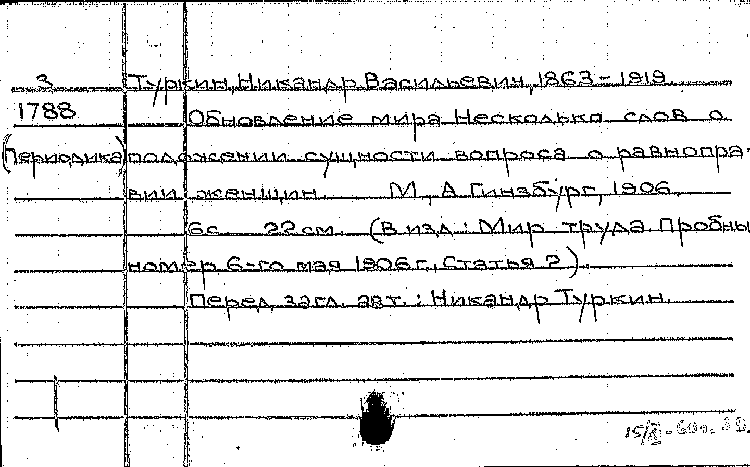 3 Туркин, Никандр Васильевич, 1863-1919.
1788 Обновление мира. Несколько слов о
(Периодика) положении сущности вопроса о равнопра-
вии женщин. М., А. Гинзбург, 1906.
6с. 22 см. (В изд.: Мир труда. Пробны
номер 6-го мая 1906 г., Статья 2).
Перед загл. авт.: Никандр Туркин.